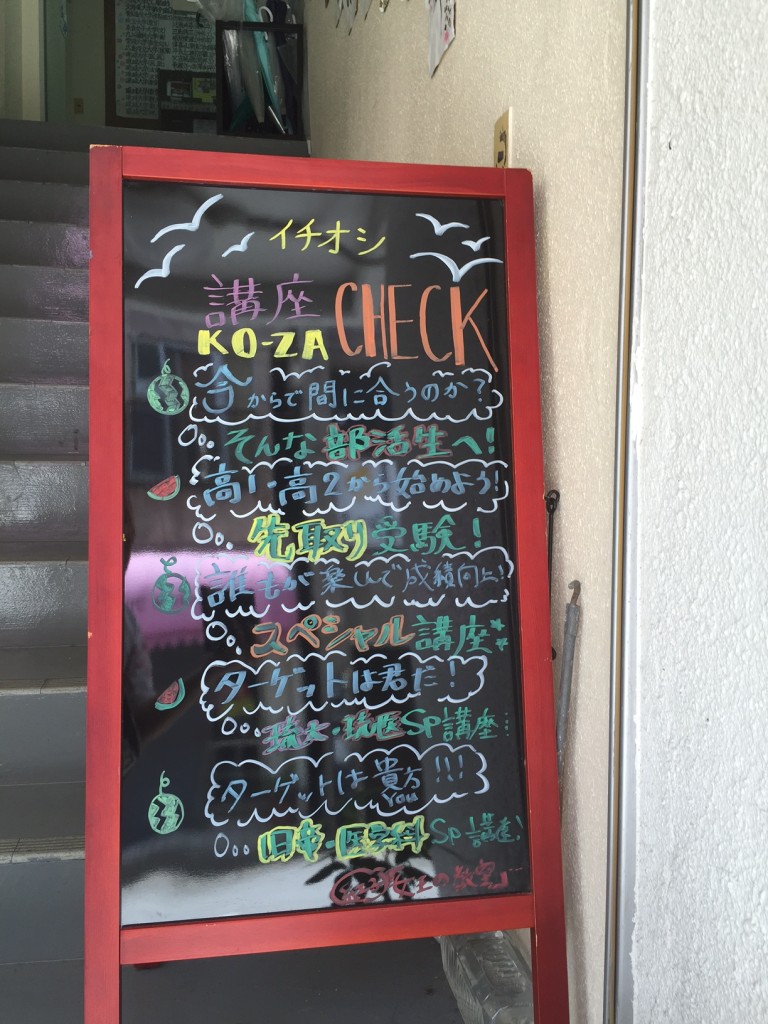 イチオシ
講座 CHECK
KO-ZA
今からで間に合うのか?
そんな部活生へ!
高1・高2から始めよう!
先取り受験!
誰もが楽しんで成績向上!
スペシャル講座
ターゲットは君だ!
琉大・琉医Sp講座
ターゲットは貴方!!!
You
旧帝・医学科Sp講座!
の教室」